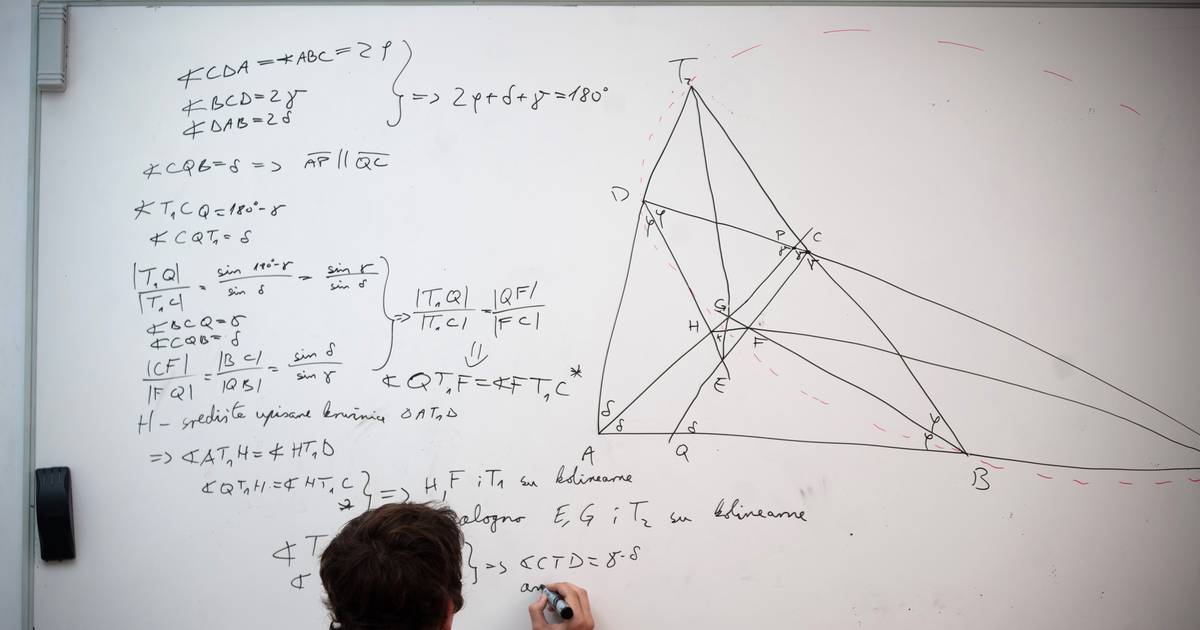 ∢CDA = ∢ABC = 2φ
∢BCD = 2γ
∢DAB = 2δ
=> 2φ+δ+γ=180°
∢CQB=δ => AP || QC
∢T₁CQ=180°-γ
∢CQT₁=δ
|T₁Q| / |T₁C| = sin 180°-γ / sin δ = sin γ / sin δ
∢BCQ=γ
∢CQB=δ
|CF| / |FQ| = |BC| / |QB| = sin δ / sin γ
=> |T₁Q| / |T₁C| = |QF| / |FC|
∢QT₁F=∢FT₁C *
H - središte upisane kružnice ΔAT₁D
=> ∢AT₁H=∢HT₁D
∢QT₁H=∢HT₁C
*
=> H, F i T₁ su kolinearne
E, G i T₂ su kolinearne
∢T
∢
=> ∢CTD=γ-δ
T₂
D
φ φ
P C
γ γ γ
G
H F
E
δ
δ δ
φ
φ
A Q B